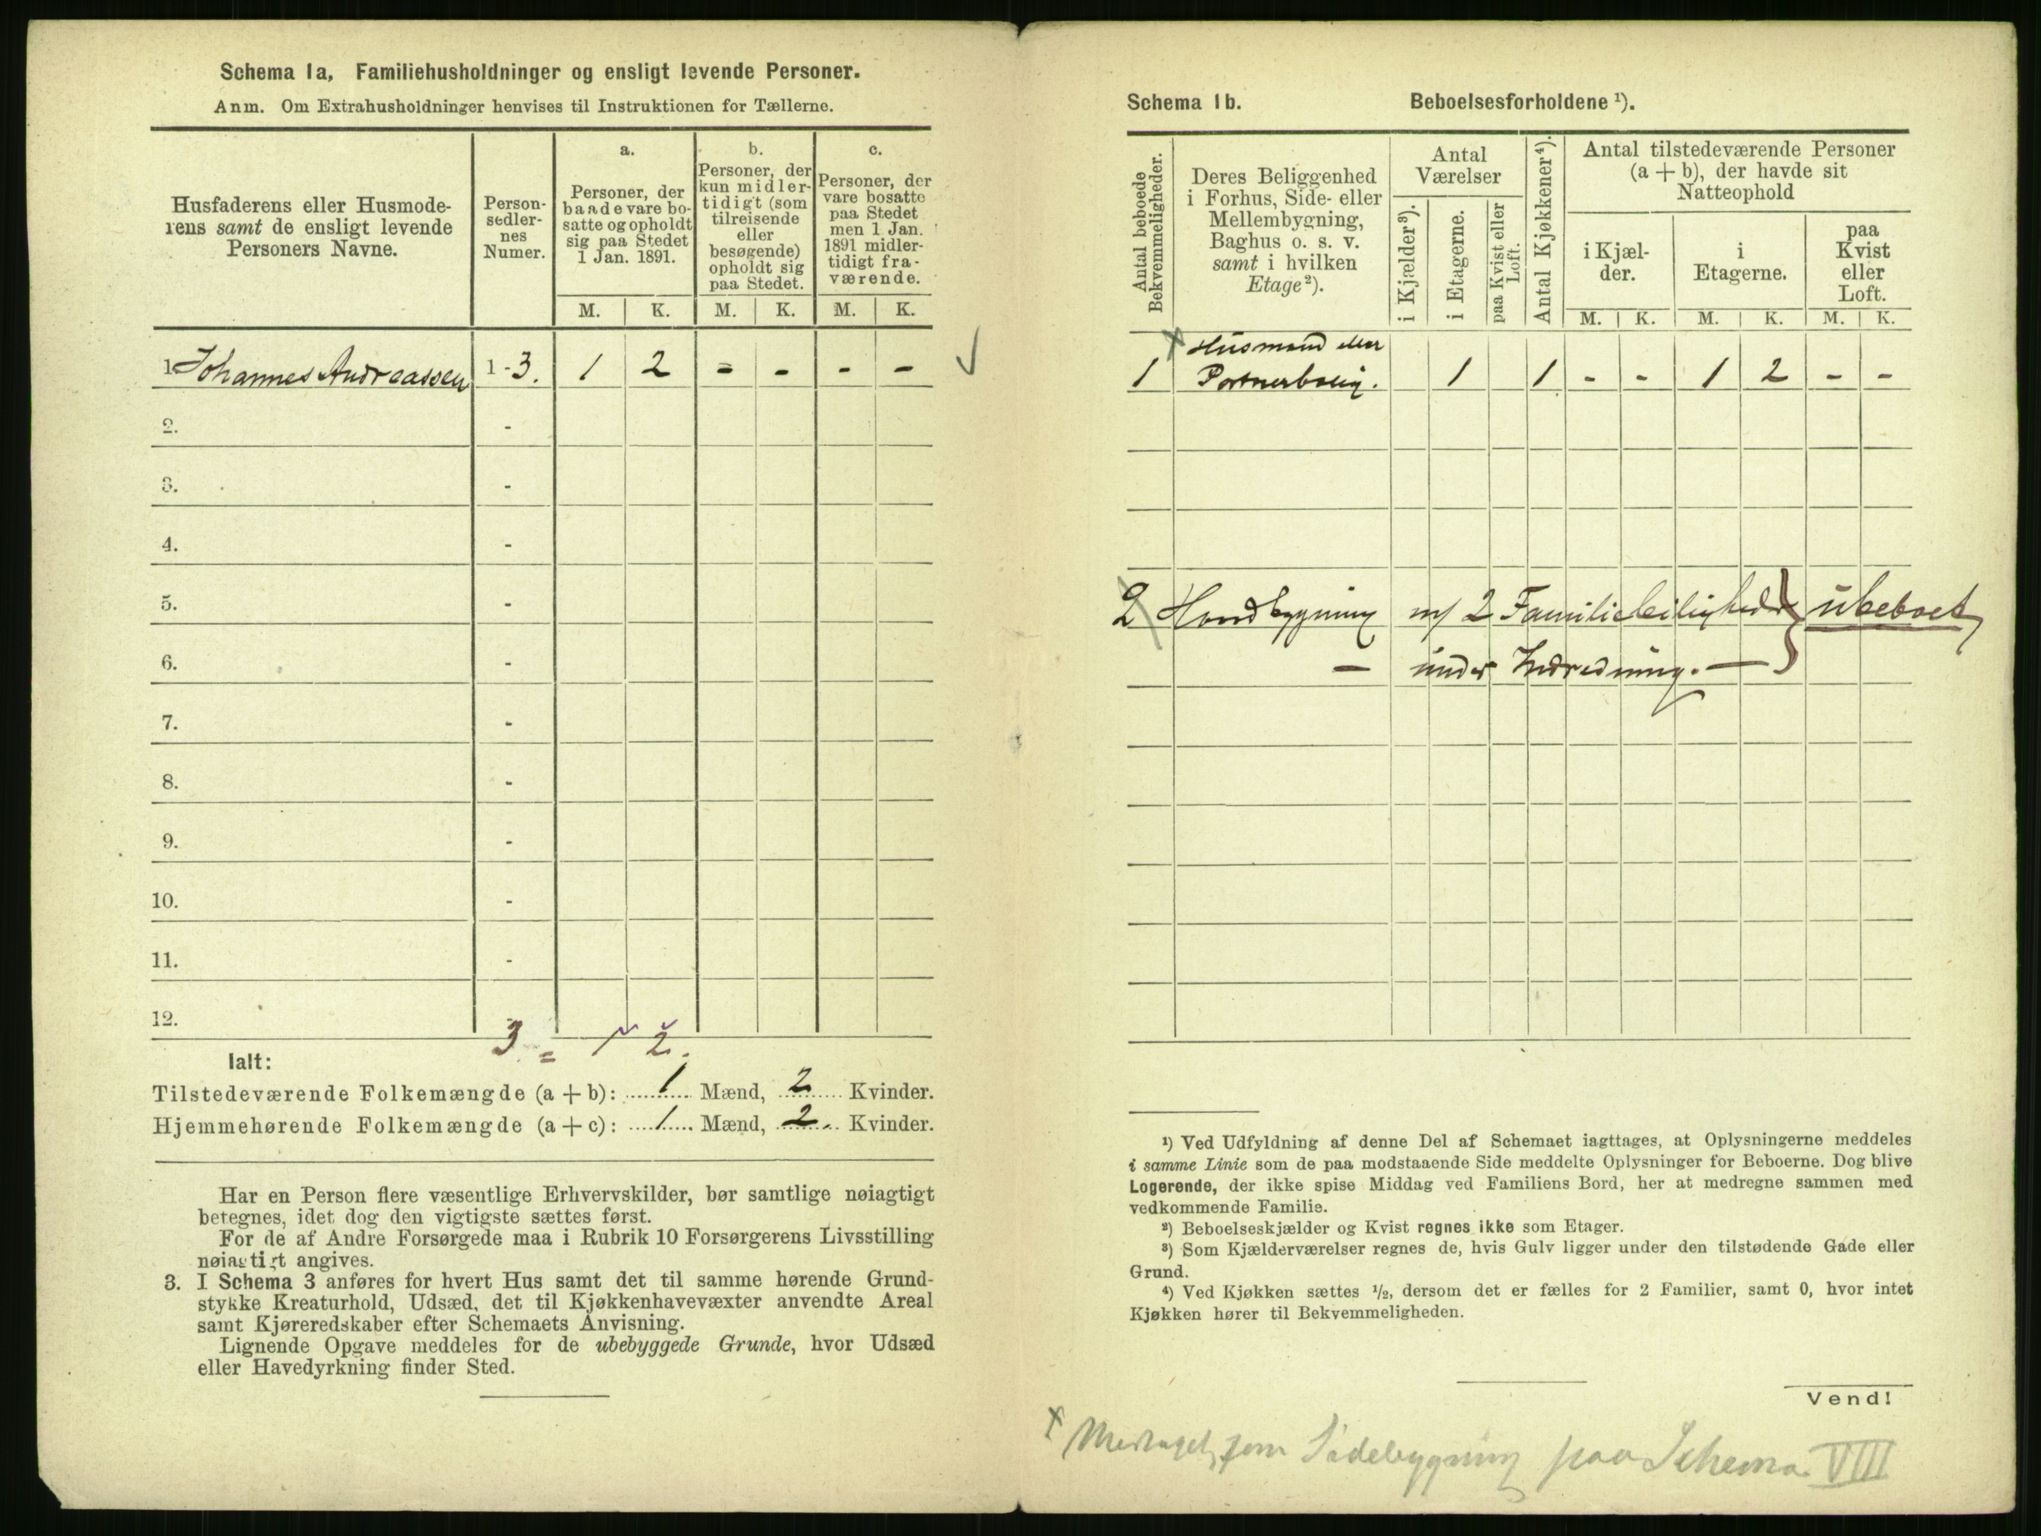 Schema 1a, Familiehusholdninger og ensligt levende Personer.
Anm. Om Extrahusholdninger henvises til Instruktionen for Tællerne.
Husfaderens eller Husmode-
rens samt de ensligt levende
Personers Navne.
Person-
sedler-
nes
Numer.
a.
Personer, der
baade vare bo-
satte og opholdt
sig paa Stedet
1 Jan. 1891.
b.
Personer, der
kun midler-
tidigt (som
tilreisende
eller
besøgende)
opholdt sig
paa Stedet.
c.
Personer, der
vare bosatte
paa Stedet
men 1 Jan.
1891 midler-
tidigt fra-
værende.
M. K. M. K. M. K.
1. Johannes Andreassen 1 - 3. 1 2 - - - -
2. -
3. -
4. -
5. -
6. -
7. -
8. -
9. -
10. -
11. -
12. -
3 = 1 2.
Ialt:
Tilstedeværende Folkemængde (a + b): 1 Mænd, 2 Kvinder.
Hjemmehørende Folkemængde (a + c): 1 Mænd, 2 Kvinder.
Har en Person flere væsentlige Erhvervskilder, bør samtlige nøiagtigt
betegnes, idet dog den vigtigste sættes først.
For de af Andre Forsørgede maa i Rubrik 10 Forsørgerens Livsstilling
nøiagtigt angives.
3. I Schema 3 anføres for hvert Hus samt det til samme hørende Grund-
stykke Kreaturhold, Udsæd, det til Kjøkkenhavevæxter anvendte Areal
samt Kjøreredskaber efter Schemaets Anvisning.
Lignende Opgave meddeles for de ubebyggede Grunde, hvor Udsæd
eller Havedyrkning finder Sted.
Schema 1b. Beboelsesforholdene ¹).
Antal beboede
Bekvemmeligheder.
Deres Beliggenhed
i Forhus, Side- eller
Mellembygning,
Baghus o. s. v.
samt i hvilken
Etage²).
Antal
Værelser
i Kjælder³).
i Etagerne.
paa Kvist eller
Loft.
Antal Kjøkkener⁴).
Antal tilstedeværende Personer
(a + b), der havde sit
Natteophold
i Kjæl-
der.
i
Etagerne.
paa
Kvist
eller
Loft.
M. K. M. K. M. K.
x Husmand eller
1 Portnerbolig. 1 1 - - 1 2 - -
2 Hovedbygning m/ 2 Familieleiligheder } ubeboet
— under Indredning. —
¹) Ved Udfyldning af denne Del af Schemaet iagttages, at Oplysningerne meddeles
i samme Linie som de paa modstaaende Side meddelte Oplysninger for Beboerne. Dog blive
Logerende, der ikke spise Middag ved Familiens Bord, her at medregne sammen med
vedkommende Familie.
²) Beboelseskjælder og Kvist regnes ikke som Etager.
³) Som Kjælderværelser regnes de, hvis Gulv ligger under den tilstødende Gade eller
Grund.
⁴) Ved Kjøkken sættes ½, dersom det er fælles for 2 Familier, samt 0, hvor intet
Kjøkken hører til Bekvemmeligheden.
Vend!
x Medtaget som Sidebygning paa Schema VIII